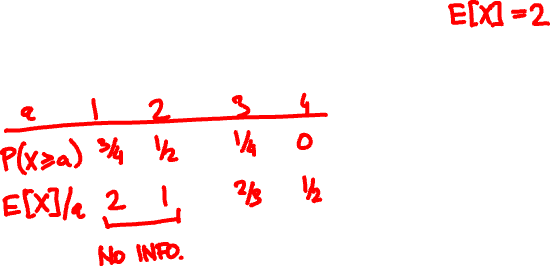 E[X]=2
a 1 2 3 4
P(X≥a) 3/4 1/2 1/4 0
E[X]/a 2 1 2/3 1/2
NO INFO.